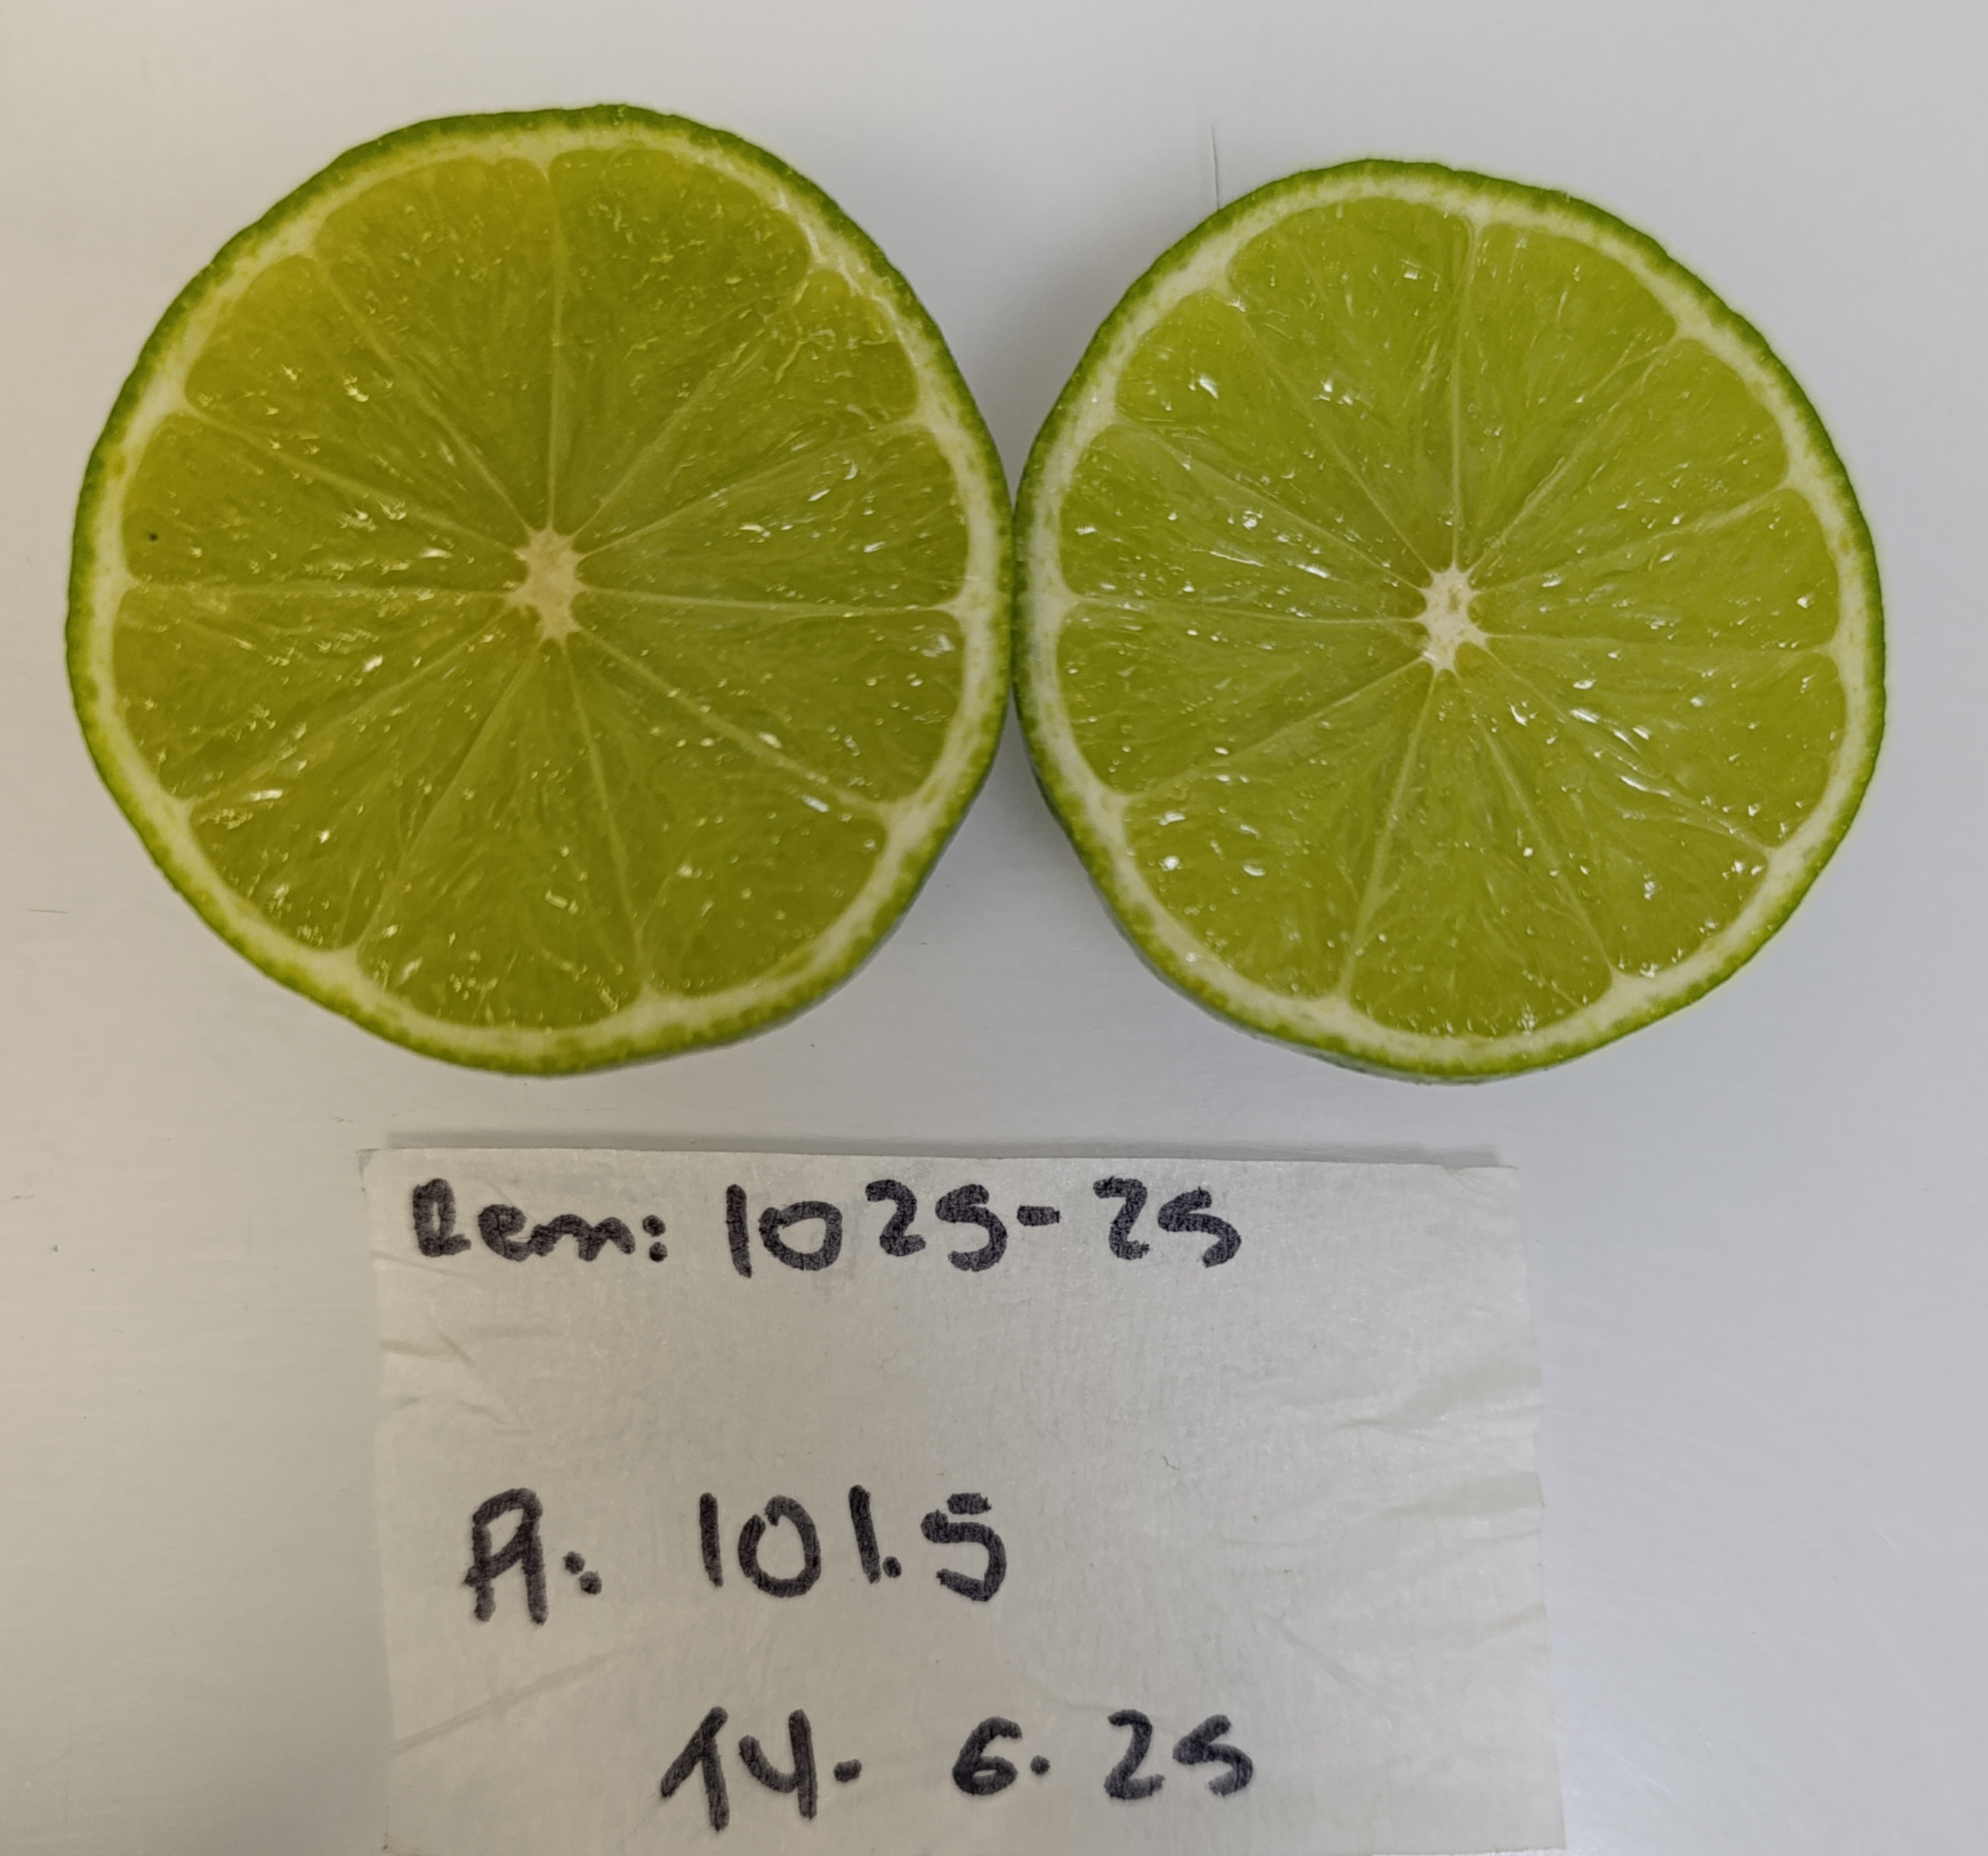 Rem: 1025-25
A: 101.5
14. 6. 25